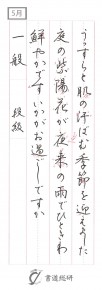 5月
うっすらと肌の汗ばむ季節を迎えました
夜の紫陽花が夜来の雨でひときわ
鮮やかですいかがお過ごしですか
一般 段級
書道総研